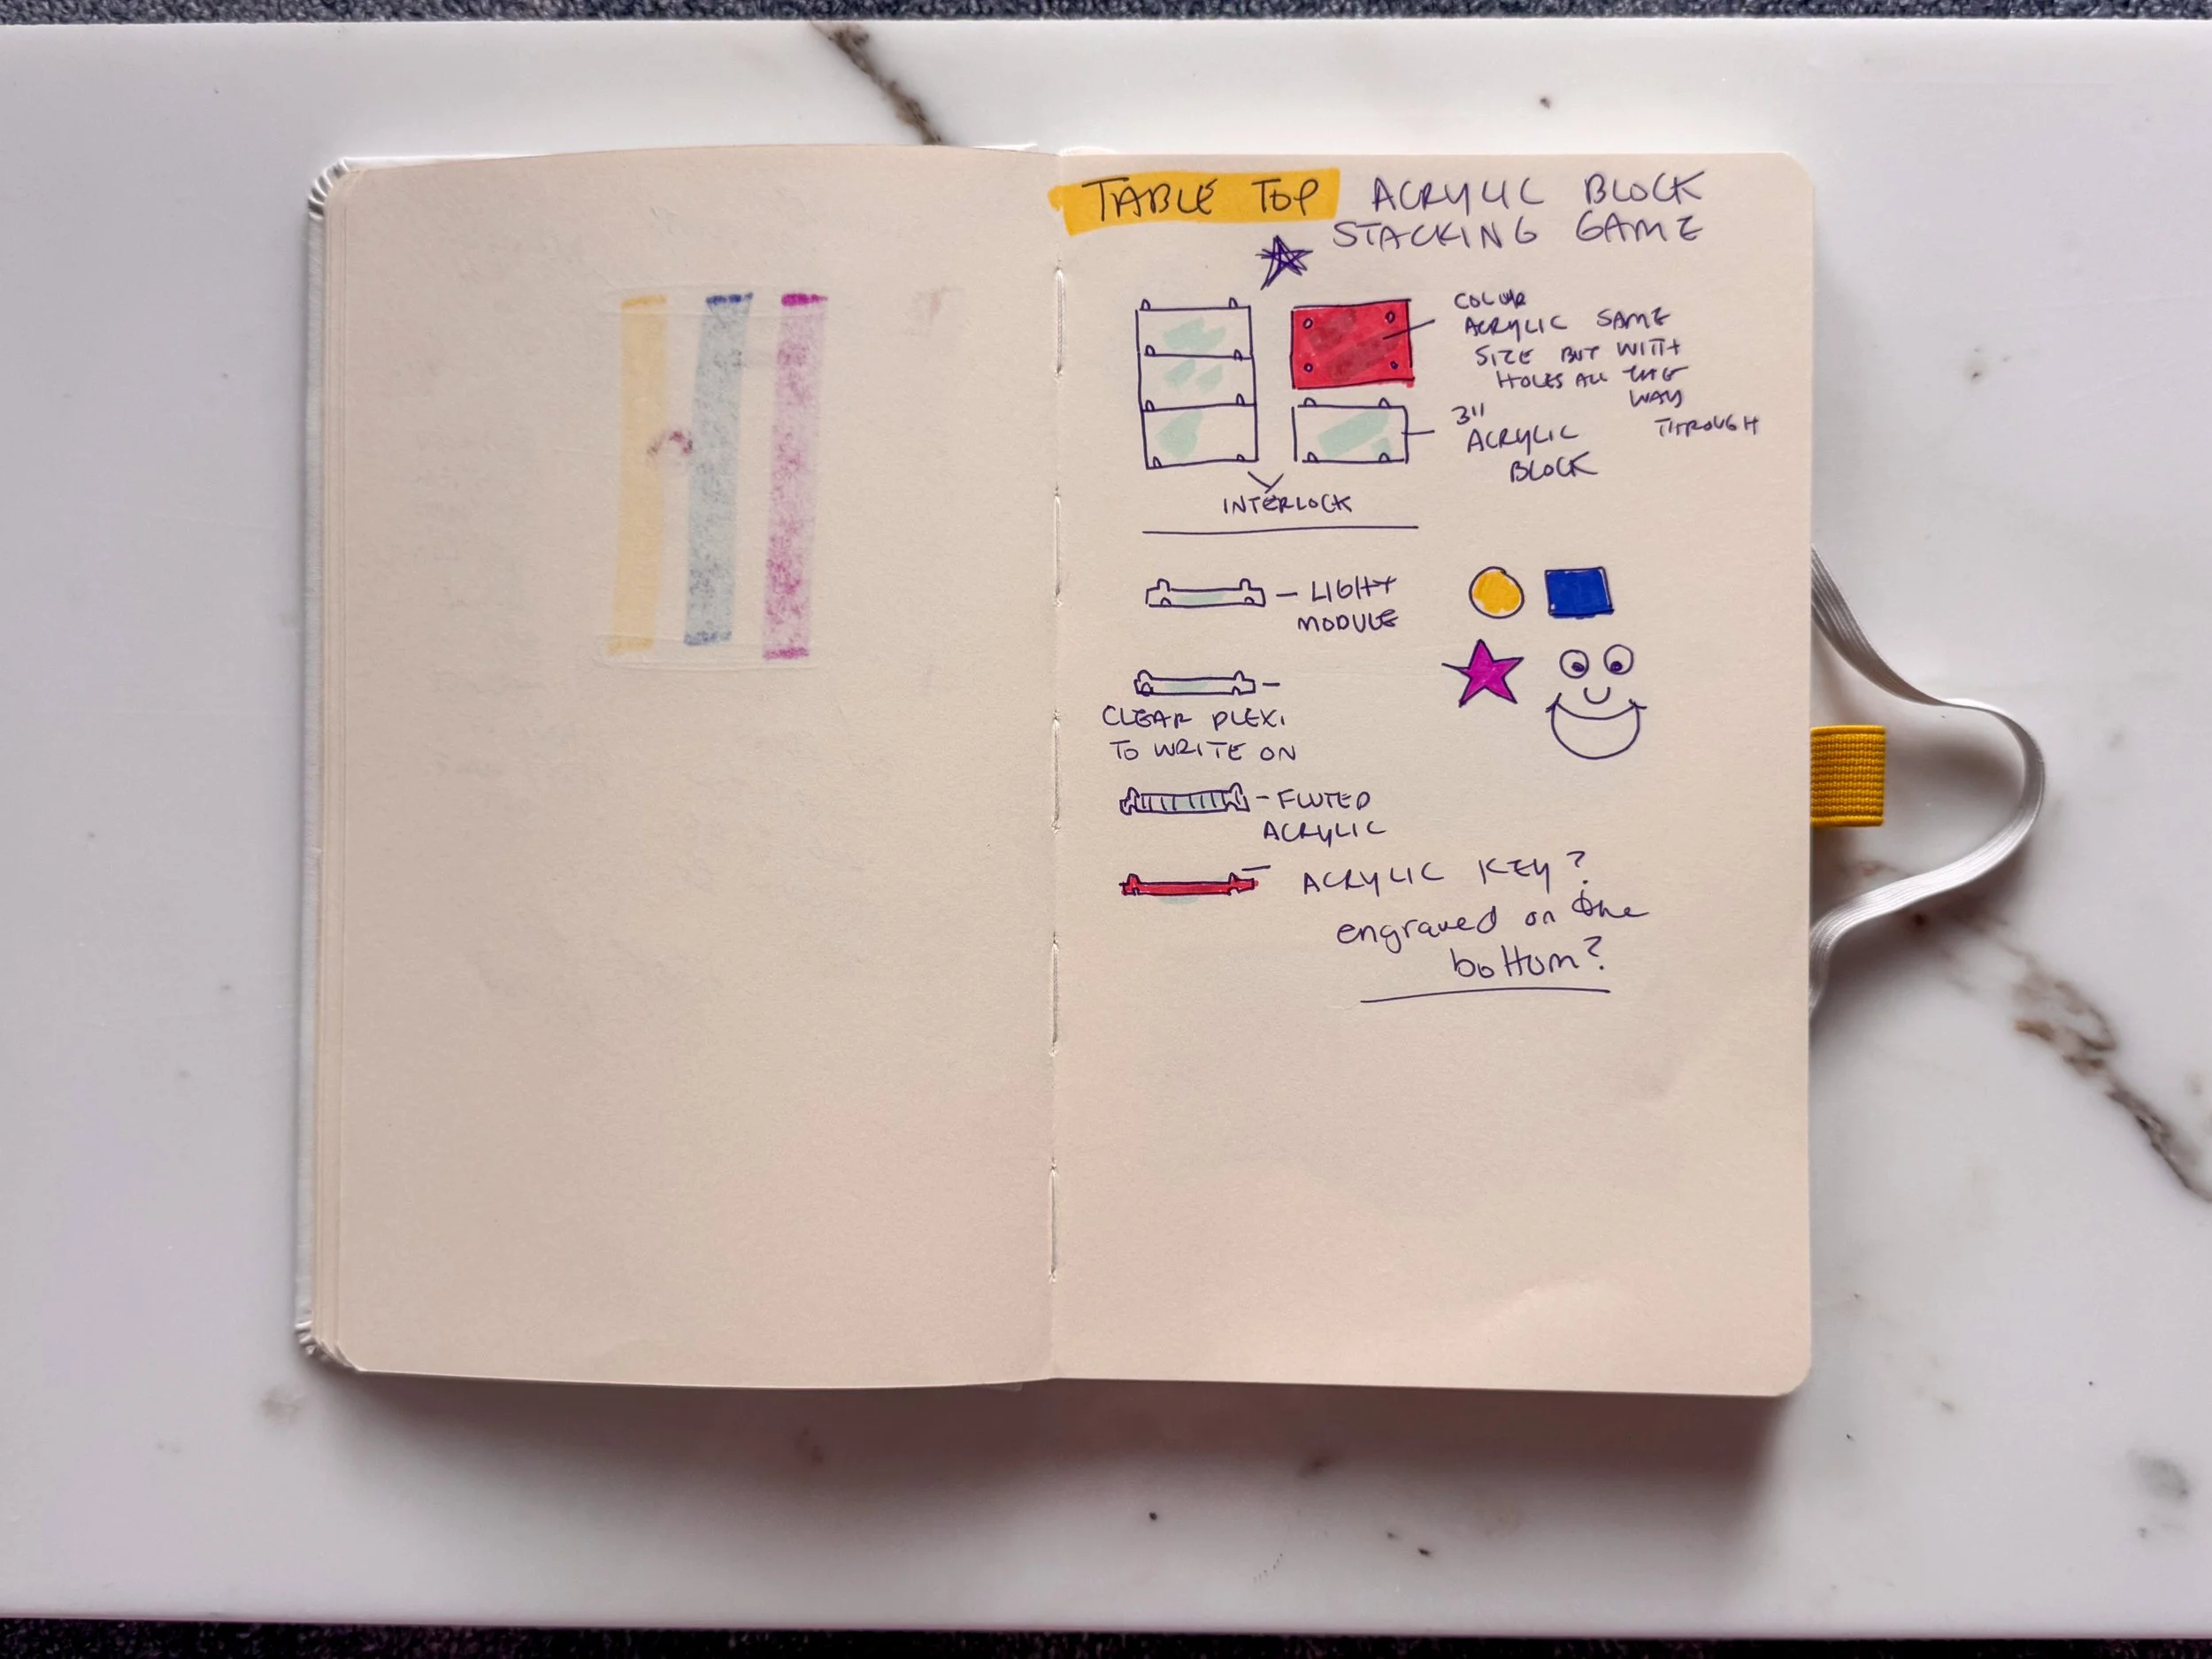 TABLE TOP ACRYLIC BLOCK
STACKING GAME
COLOR
ACRYLIC SAME
SIZE BUT WITH
HOLES ALL THE
WAY
THROUGH
3"
ACRYLIC
BLOCK
INTERLOCK
- LIGHT
MODULE
-
CLEAR PLEXI
TO WRITE ON
- FLUTED
ACRYLIC
- ACRYLIC KEY?
engraved on the
bottom?